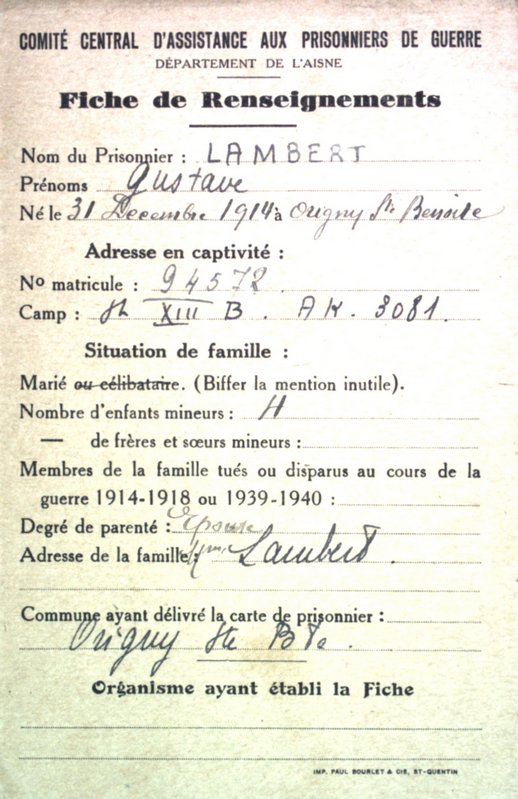 COMITÉ CENTRAL D'ASSISTANCE AUX PRISONNIERS DE GUERRE
DÉPARTEMENT DE L'AISNE
Fiche de Renseignements
Nom du Prisonnier : LAMBERT
Prénoms Gustave
Né le 31 Decembre 1914 à Origny Ste Benoite
Adresse en captivité :
No matricule : 94572
Camp : St XIII B . AK. 3081.
Situation de famille :
Marié ou célibataire. (Biffer la mention inutile).
Nombre d'enfants mineurs : 4
— de frères et sœurs mineurs :
Membres de la famille tués ou disparus au cours de la
guerre 1914-1918 ou 1939-1940 :
Degré de parenté : Epouse
Adresse de la famille : Mme Lambert .
Commune ayant délivré la carte de prisonnier :
Origny Ste Bte .
Organisme ayant établi la Fiche
IMP. PAUL BOURLET & CIE, ST-QUENTIN